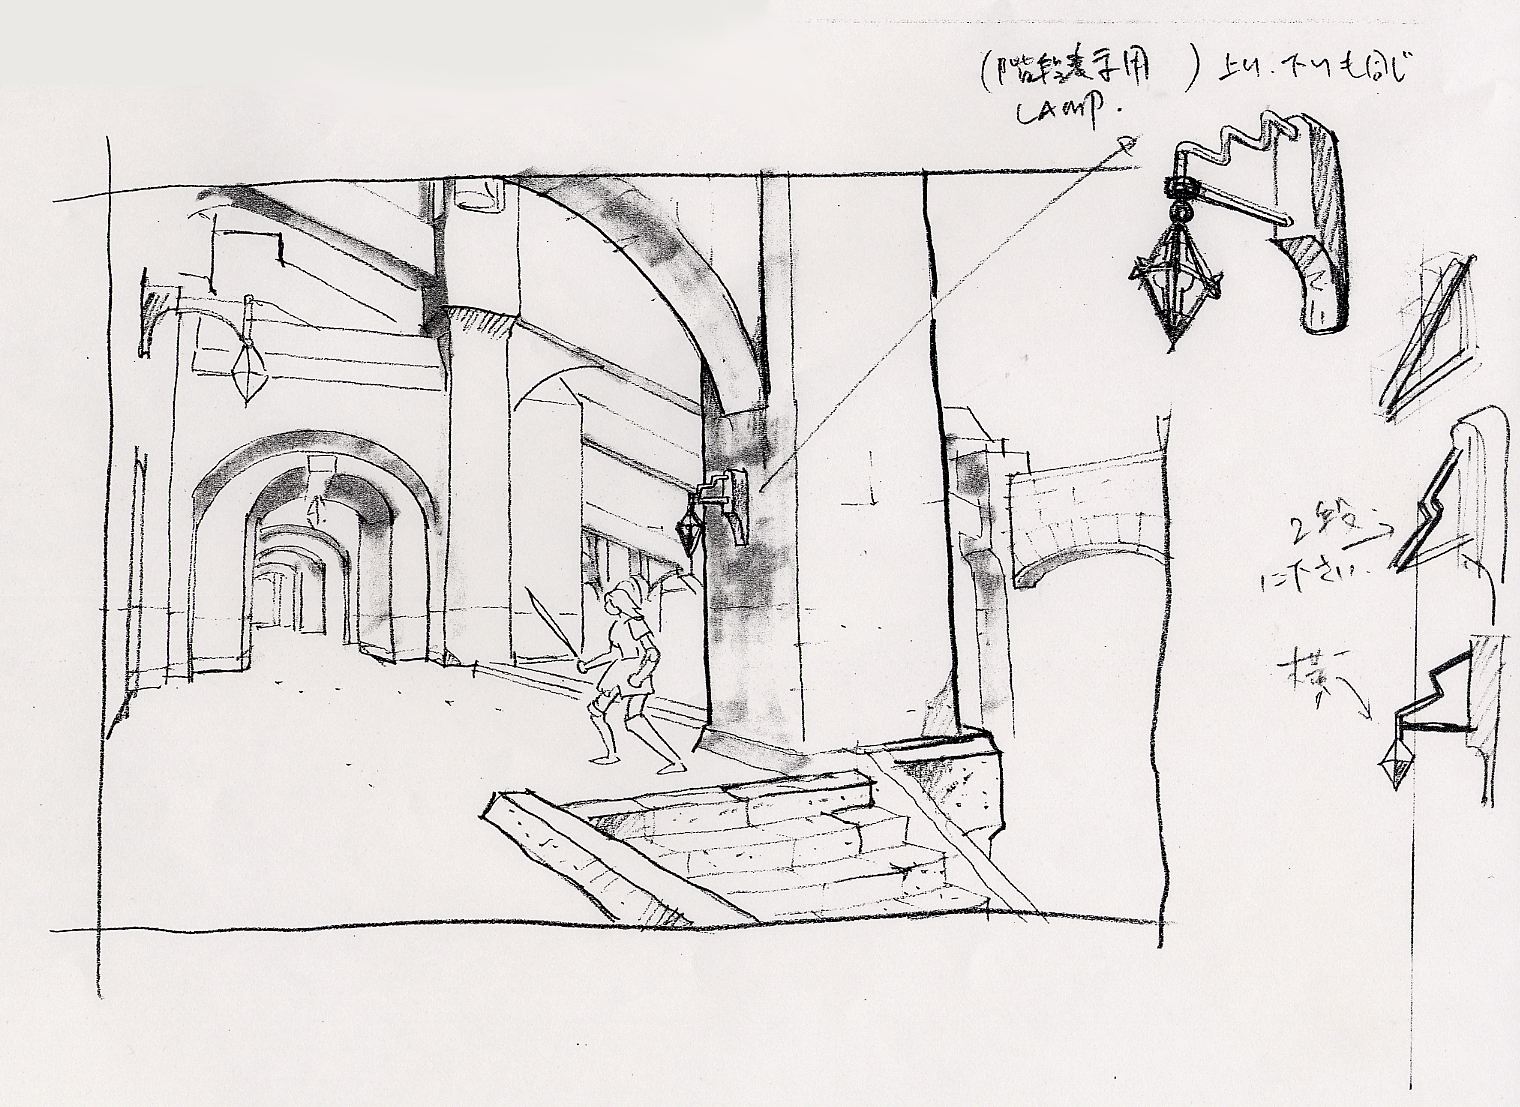 (階段表示用　) 上り.下りも同じ
LAMP.
2段
に下さい.
横